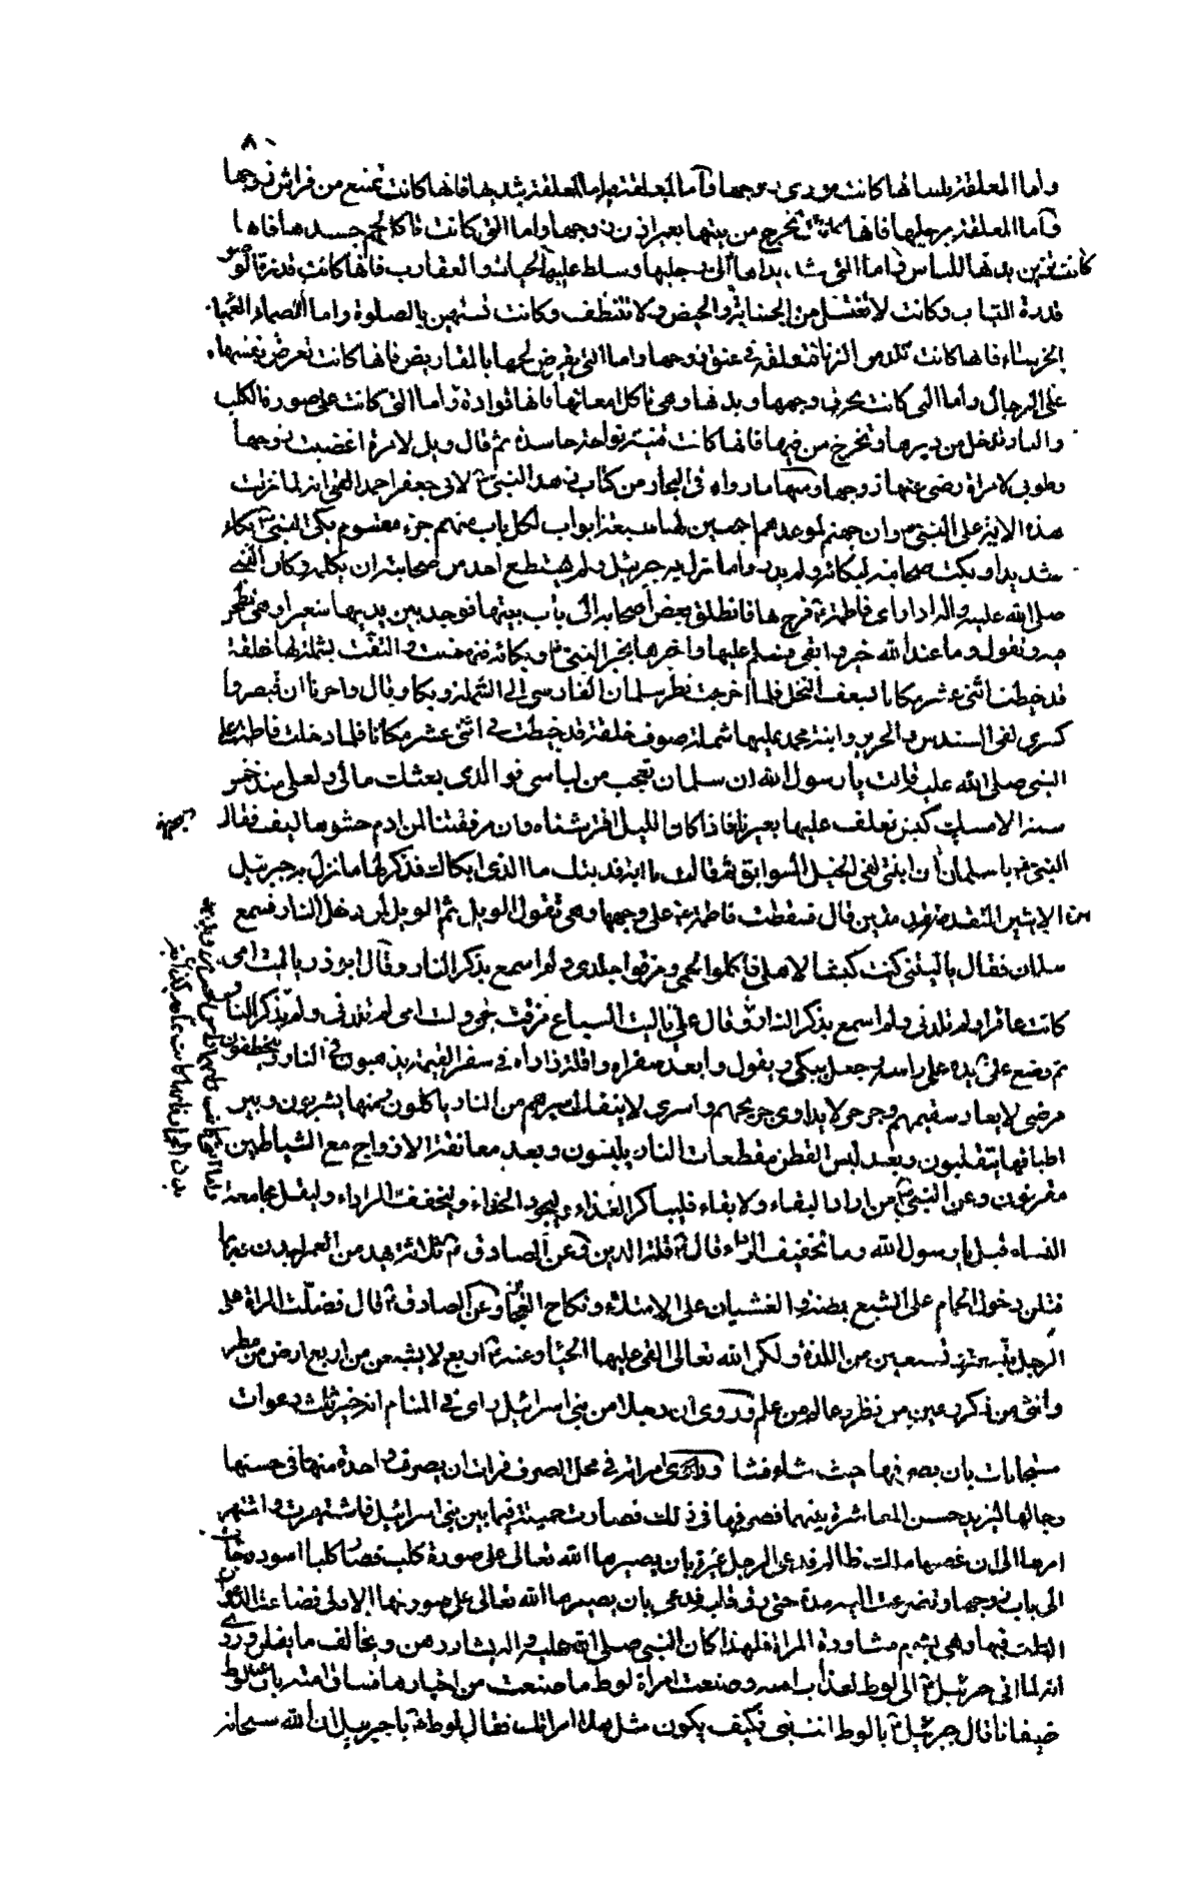 ٨٠
واما المعلقة بلسانها كانت موذى زوجها واما المعلقة بثديها فانها كانت تمنع من فراش زوجها
واما المعلقة برجليها فانها كانت تخرج من بيتها بغير اذن زوجها واما التى كانت تاكل لحم جسدها فانها
كانت تزين بدنها للناس واما التى شد يداها الى رجليها وسلط عليها الحيات والعقارب فانها كانت قذرة الوضوء
قذرة الثياب وكانت لا تغتسل من الجنابة والحيض ولا تتنظف وكانت تستهين بالصلوة واما الصماء العمياء
الخرساء فانها كانت تلد من الزنا فتعلقه فى عنق زوجها واما التى يقرض لحمها بالمقاريض فانها كانت تعرض نفسها
على الرجال واما التى كانت يحرق وجهها وبدنها وهى تاكل امعائها فانها قوادة واما التى كانت على صورة الكلب
والنار تدخل من دبرها وتخرج من فيها فانها كانت قينة نواحة حاسدة ثم قال ويل لامرة اغضبت زوجها
وطوبى لامراة رضى عنها زوجها ومنها ما رواه فى البحار من كتاب زهد النبى ص لابى جعفر احمد القمى انه لما نزلت
هذه الاية على النبى ص وان جهنم لموعدهم اجمعين لها سبعة ابواب لكل باب منهم جزء مقسوم بكى النبى ص بكاء
شديدا وبكت صحابته لبكائه ولم يدروا ما نزل به جبرئيل ولم يستطع احد من صحابته ان يكلمه وكان النبى
صلى الله عليه واله اذا راى فاطمة ع فرح بها فانطلق بعض اصحابه الى باب بيتها فوجد بين يديها شعيرا وهى تطحن
فيه وتقول وما عند الله خير وابقى فسلم عليها واخبرها بخبر النبى ص وبكائه فنهضت والتفت بشملة لها خلقة
قد خيطت اثنى عشر مكانا بسعف النخل فلما خرجت نظر سلمان الفارسى الى الشملة وبكا وقال واحزنا ان قيصر وا
كسرى لفى السندس والحرير وابنة محمد عليها شملة صوف خلقة قد خيطت فى اثنى عشر مكانا فلما دخلت فاطمة على
النبى صلى الله عليه قالت يا رسول الله ان سلمان تعجب من لباسى فو الذى بعثك مالى ولعلى منذ خمس
سنة الا مسك كبش نعلف عليها بعيرنا فاذا كان الليل افترشناه وان مرفقتنا لمن ادم حشوها ليف فقال
النبى ص يا سلمان ان ابنتى لفى الخيل السوابق ثم قالت يا ابة فديتك ما الذى ابكاك فذكر لها ما نزل به جبرئيل
من الايتين المتقدمتين قال فسقطت فاطمة ع على وجهها وهى تقول الويل ثم الويل لمن دخل النار فسمع
سلمان فقال يا ليتنى كنت كبشا لاهلى فاكلوا لحمى ومزقوا جلدى ولم اسمع بذكر النار وقال ابوذر يا ليت امى
كانت عاقرا ولم تلدنى ولم اسمع بذكر النار وقال على يا ليت السباع مزقت لحمى وليت امى لم تلدنى ولم يذكر النار
ثم وضع على ع يده على راسه وجعل يبكى ويقول وا بعد سفراه وا قلة زاداه فى سفر القيمة يذهبون فى النار ويتخطفون
مرضى لا يعاد سقيمهم وجرحى لا يداوى جريحهم واسرى لا يفك اسيرهم من النار ياكلون ومنها يشربون وبين
اطباقها يتقلبون وبعد لبس القطن مقطعات النار يلبسون وبعد معانقة الازواج مع الشياطين
مقرنون وعن النبى ص من اراد البقاء ولا بقاء فليباكر الغذاء وليجود الحذاء وليخفف الرداء وليقل مجامعة
النساء قيل يا رسول الله وما تخفيف الرداء قال ص قلة الدين وعن الصادق ع ثلاثة يهد من العمر
قتلن دخول الحمام على الشبع بطنة والغشيان على الامتلاء ونكاح العجائز وعن الصادق ع قال فضلت المراة على
الرجل بتسعة وتسعين من اللذة ولكن الله تعالى القى عليها الحياء وعنه ع اربع لا يشبعن من اربع ارض من مطر
وانثى من ذكر وعين من نظر وعالم من علم وروى ان رجلا من بنى اسرائيل راى فى المنام انه خير ثلث دعوات
مستجابات بان يصرفها حيث شاء فشاور امراته فى محل الصرف فرات ان يصرف واحدة منها فى حسنها
وجمالها ليزيد حسن المعاشرة بينهما فصرفها فى ذلك فصارت جميلة فيما بين بنى اسرائيل فاشتهرت واشتهر
امرها الى ان غصبها ملك ظالم فدعى الرجل غيرة بان يصيرها الله تعالى على صورة كلب فصارت كلبا اسود وجائت
الى باب زوجها وتضرعت اليه مدة حتى رق قلبه فدعى بان يصيرها الله تعالى على صورتها الاولى فضاعت الدعوات
الثلث فيها وهى بشوم مشاورة المراة فلهذا كان النبى صلى الله عليه واله يشاورهن ويخالف ما يقلن وروى
انه لما اتى جبرئيل ع الى لوط لعذاب امته وصنعت امراة لوط ما صنعت من اخبارها فساق امته بان عند لوط
ضيفانا قال جبرئيل ع يا لوط انت نبى فكيف يكون مثل هذه امراتك فقال لوط ع يا جبرئيل ان الله سبحانه